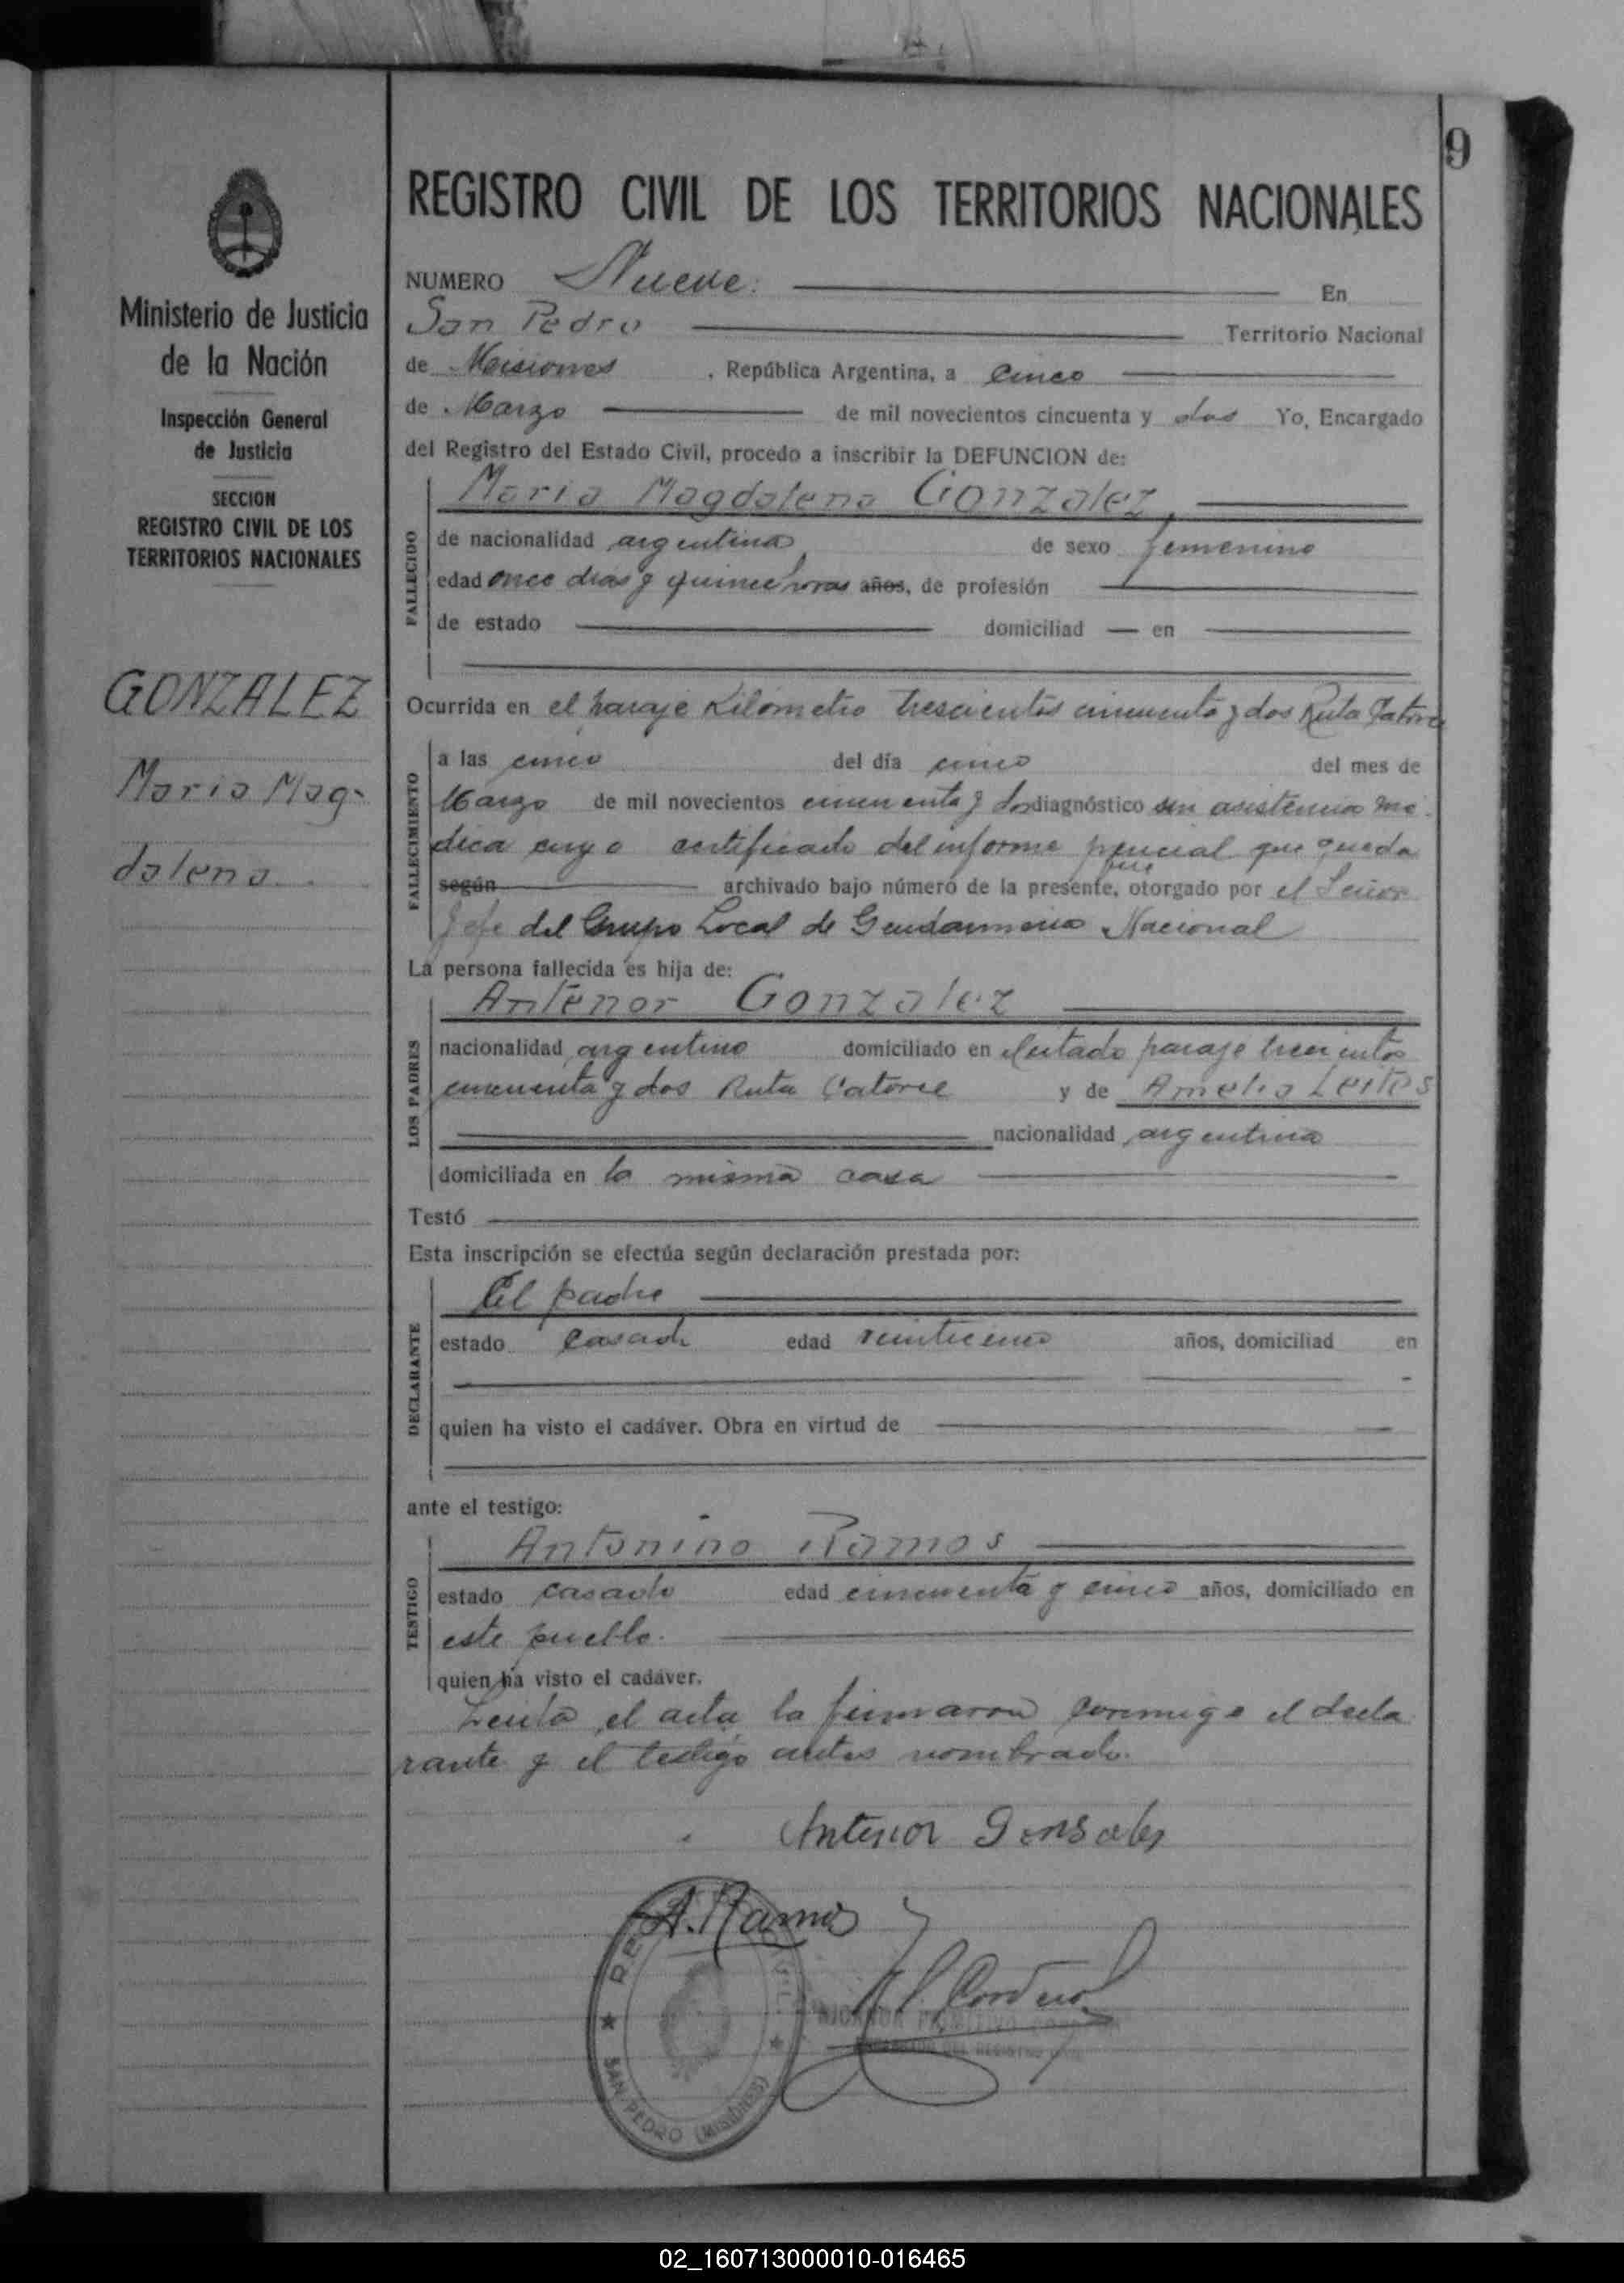 9
REGISTRO CIVIL DE LOS TERRITORIOS NACIONALES
Ministerio de Justicia
de la Nación
Inspección General
de Justicia
SECCION
REGISTRO CIVIL DE LOS
TERRITORIOS NACIONALES
GONZALEZ
Maria Mag-
dalena.
NUMERO Nueve. En
San Pedro Territorio Nacional
de Misiones, República Argentina, a cinco
de Marzo de mil novecientos cincuenta y dos Yo, Encargado
del Registro del Estado Civil, procedo a inscribir la DEFUNCION de:
Maria Magdalena Gonzalez,
FALLECIDO
de nacionalidad argentina de sexo femenino
edad once dias y quince horas años, de profesión
de estado domiciliad — en
Ocurrida en el paraje Kilómetro trescientos cincuenta y dos Ruta Catorce
FALLECIMIENTO
a las cinco del día cinco del mes de
Marzo de mil novecientos cincuenta y dos diagnóstico sin asistencia mé-
dica cuyo certificado del informe que queda
según archivado bajo número de la presente, fue otorgado por el Señor
Jefe del Grupo Local de Gendarmeria Nacional
La persona fallecida es hija de:
Antenor Gonzalez
LOS PADRES
nacionalidad argentino domiciliado en el citado paraje trescientos
cincuenta y dos Ruta Catorce y de Amelia Leites
nacionalidad argentina
domiciliada en la misma casa
Testó
Esta inscripción se efectúa según declaración prestada por:
El padre
DECLARANTE
estado casado edad veinticinco años, domiciliad en
quien ha visto el cadáver. Obra en virtud de
ante el testigo:
Antonino Ramos
TESTIGO
estado casado edad cincuenta y cinco años, domiciliado en
este pueblo.
quien ha visto el cadáver.
Leida el acta la firmaron conmigo el decla
rante y el testigo antes nombrado.
Antenor Gonsales
A. Ramos
SAN PEDRO (MISIONES)
02_160713000010-016465